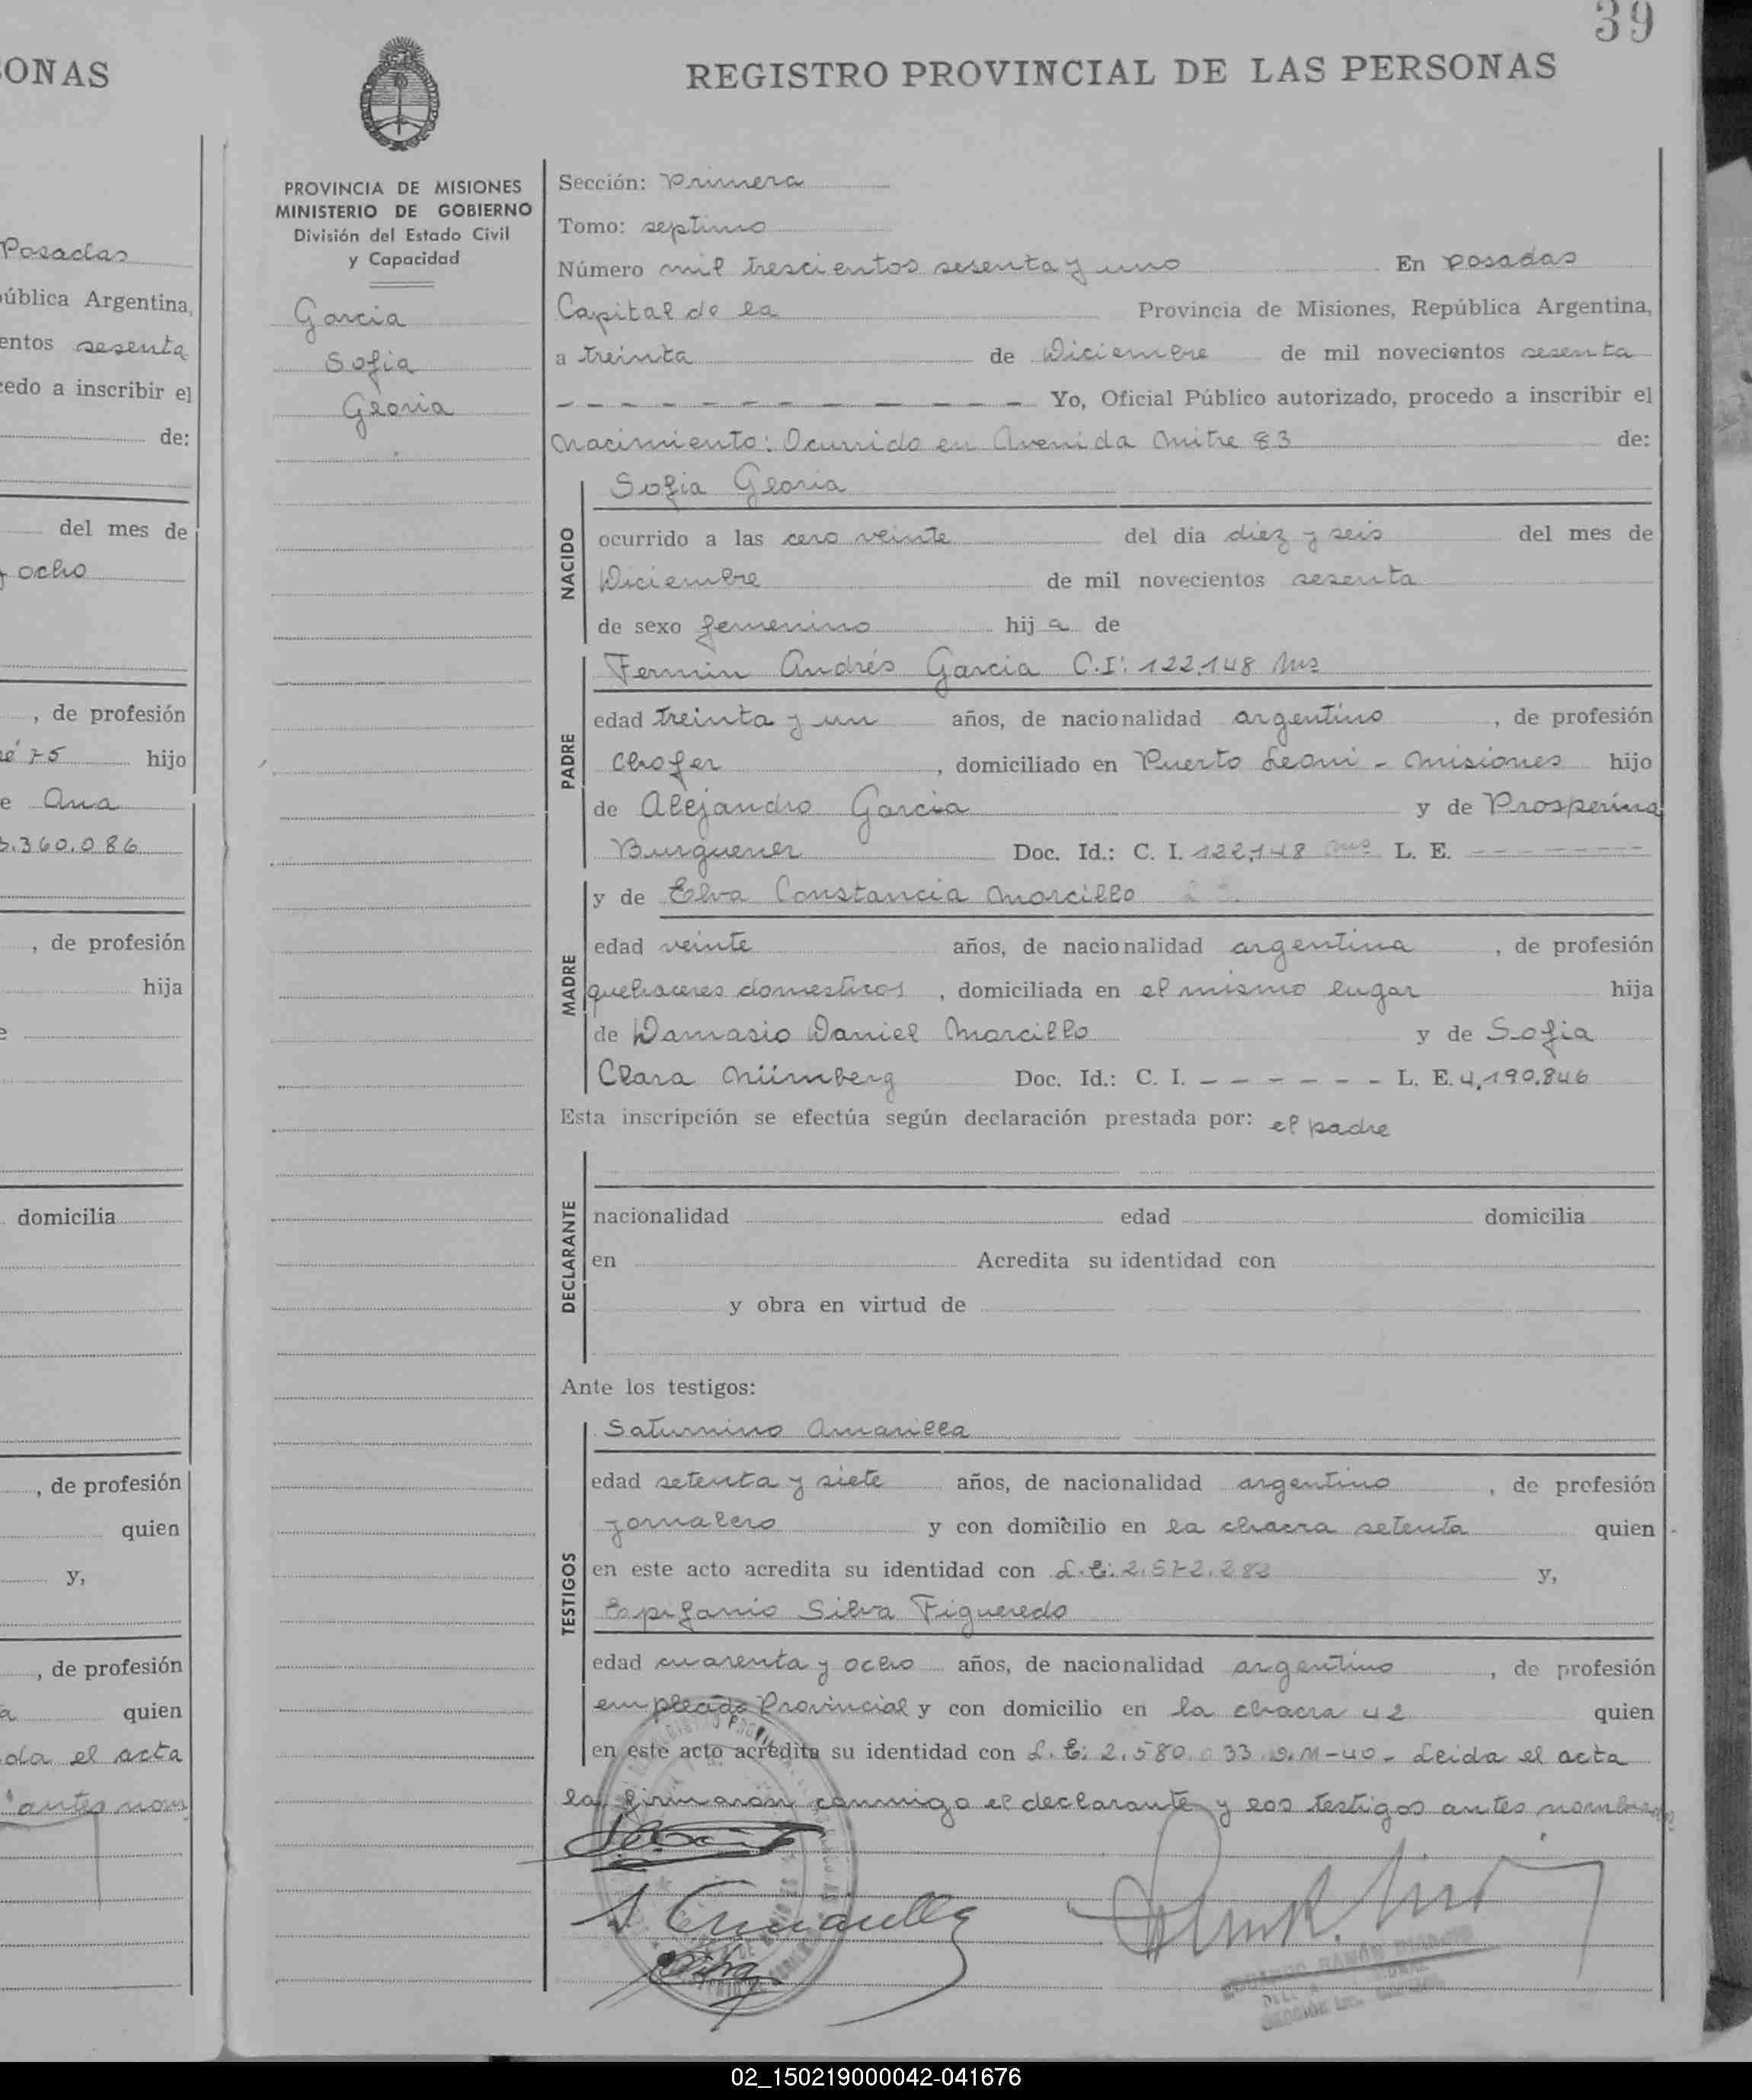 39
ONAS
REGISTRO PROVINCIAL DE LAS PERSONAS
PROVINCIA DE MISIONES
MINISTERIO DE GOBIERNO
División del Estado Civil
y Capacidad
Garcia
Sofia
Gloria
Posadas
ública Argentina,
entos sesenta
cedo a inscribir el
de:
del mes de
y ocho
, de profesión
75 hijo
e Ana
.360.086
, de profesión
hija
domicilia
, de profesión
quien
y,
, de profesión
quien
da el acta
antes nom
Sección: Primera
Tomo: septimo
Número mil trescientos sesenta y uno En Posadas
Capital de la Provincia de Misiones, República Argentina,
a treinta de Diciembre de mil novecientos sesenta
Yo, Oficial Público autorizado, procedo a inscribir el
Nacimiento: Ocurrido en Avenida Mitre 83 de:
NACIDO
Sofia Gloria
ocurrido a las cero veinte del dia diez y seis del mes de
Diciembre de mil novecientos sesenta
de sexo femenino hij a de
PADRE
Fermin Andrés Garcia C.I: 122.148 Mns
edad treinta y un años, de nacionalidad argentino , de profesión
chofer , domiciliado en Puerto Leoni - Misiones hijo
de Alejandro Garcia y de Prosperina
Burguener Doc. Id.: C. I. 122,148 Mns L. E. - - - - - - - - -
MADRE
y de Elva Constancia Morcillo
edad veinte años, de nacionalidad argentina , de profesión
quehaceres domesticos , domiciliada en el mismo lugar hija
de Damasio Daniel Morcillo y de Sofia
Clara Nürnberg Doc. Id.: C. I. - - - - - - L. E. 4,190.846
Esta inscripción se efectúa según declaración prestada por: el padre
DECLARANTE
nacionalidad edad domicilia
en Acredita su identidad con
y obra en virtud de
Ante los testigos:
TESTIGOS
Saturnino Amarilla
edad setenta y siete años, de nacionalidad argentino , de profesión
jornalero y con domicilio en la chacra setenta quien
en este acto acredita su identidad con L.E: 2.572.282 y,
Epifanio Silva Figueredo
edad cuarenta y ocho años, de nacionalidad argentino , de profesión
empleado Provincial y con domicilio en la chacra 42 quien
en este acto acredita su identidad con L.E: 2.580.033.D.M-40- Leida el acta
la firmaron conmigo el declarante y los testigos antes nombrados
02_150219000042-041676